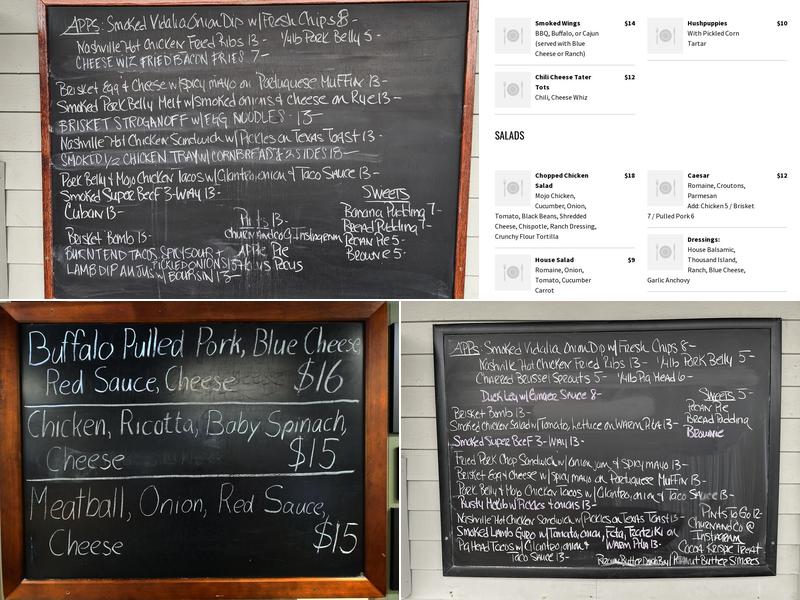 APPS: Smoked Vidalia Onion Dip w/Fresh Chips 8-
Nashville Hot Chicken Fried Ribs 13- 1/4lb Pork Belly 5-
CHEESE WIZ FRIED BACON FRIES 7-
Brisket Egg & Cheese w/spicy mayo on Portuguese Muffin 13-
Smoked Pork Belly Melt w/smoked onions & cheese on Rye 13-
BRISKET STROGANOFF w/EGG NOODLES - 13-
Nashville Hot Chicken Sandwich w/Pickles on Texas Toast 13-
SMOKED 1/2 CHICKEN TRAY w/ CORNBREAD & 2 SIDES 18-
Pork Belly & Mojo Chicken Tacos w/Cilantro, onion & Taco Sauce 13-
Smoked Super Beef 3-WAY 13-
Cuban 13-
Brisket Bomb 13-
BURNT END TACOS, SPICY SOUR &
PICKLED ONIONS 13-
LAMB DIP AU JUS w/ BOURSIN 13-
Pints 13-
churnandco@Instagram
Apple Pie
SWEETS
Banana Pudding 7-
Bread Pudding 7-
Pecan Pie 5-
Brownie 5-
Smoked Wings $14
BBQ, Buffalo, or Cajun
(served with Blue
Cheese or Ranch)
Hushpuppies $10
With Pickled Corn
Tartar
Chili Cheese Tater
Tots $12
Chili, Cheese Whiz
SALADS
Chopped Chicken
Salad $18
Mojo Chicken,
Cucumber, Onion,
Tomato, Black Beans, Shredded
Cheese, Chipotle, Ranch Dressing,
Crunchy Flour Tortilla
Caesar $12
Romaine, Croutons,
Parmesan
Add: Chicken 5 / Brisket
7 / Pulled Pork 6
House Salad $9
Romaine, Onion,
Tomato, Cucumber
Carrot
Dressings:
House Balsamic,
Thousand Island,
Ranch, Blue Cheese,
Garlic Anchovy
Buffalo Pulled Pork, Blue Cheese,
Red Sauce, Cheese $16
Chicken, Ricotta, Baby Spinach,
Cheese $15
Meatball, Onion, Red Sauce,
Cheese $15
APPS: Smoked Vidalia Onion Dip w/Fresh Chips 8-
Nashville Hot Chicken Fried Ribs 13- 1/4lb Pork Belly 5-
Charred Brussel Sprouts 5- 1/4lb Pig Head 6-
Duck Leg w/Ginger Sauce 8-
Brisket Bomb 13-
Smoked Chicken Salad w/Tomato, lettuce on WARM Pita 13-
Smoked Super Beef 3-WAY 13-
Fried Pork Chop Sandwich w/onion jam & spicy mayo 13-
Brisket Egg & Cheese w/spicy mayo on Portuguese Muffin 13-
Pork Belly & Mojo Chicken Tacos w/Cilantro, onion & Taco Sauce 13-
w/Pickles & onions 13-
Nashville Hot Chicken Sandwich w/Pickles on Texas Toast 13-
Smoked Lamb Gyro w/Tomato, onion, Feta, Tzatziki on
WARM Pita 13-
Pig Head Tacos w/Cilantro, onion &
Taco Sauce 13-
SWEETS 5-
Pecan Pie
Bread Pudding
Brownie
Pints To Go 12-
Churnandco @
Instagram
Cocoa Krispie Treat
Peanut Butter S'mores